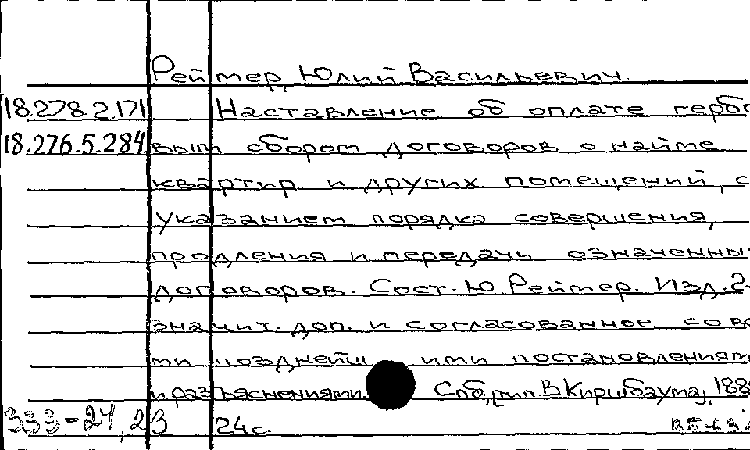 Реймер, Юлий Васильевич.
18.278.2.171 Наставление об оплате гербо
18.276.5.284 вым сбором договоров о найме
квартир и других помещений, с
указанием порядка совершения,
продления и передачи означенны
договоров. Сост. Ю. Реймер. Изд. 2-
значит. доп. и согласованное со вс
ми позднейшими постановлениям
и разъяснениями. Спб, тип. В. Киршбаума, 188
333-24, 23 24с.